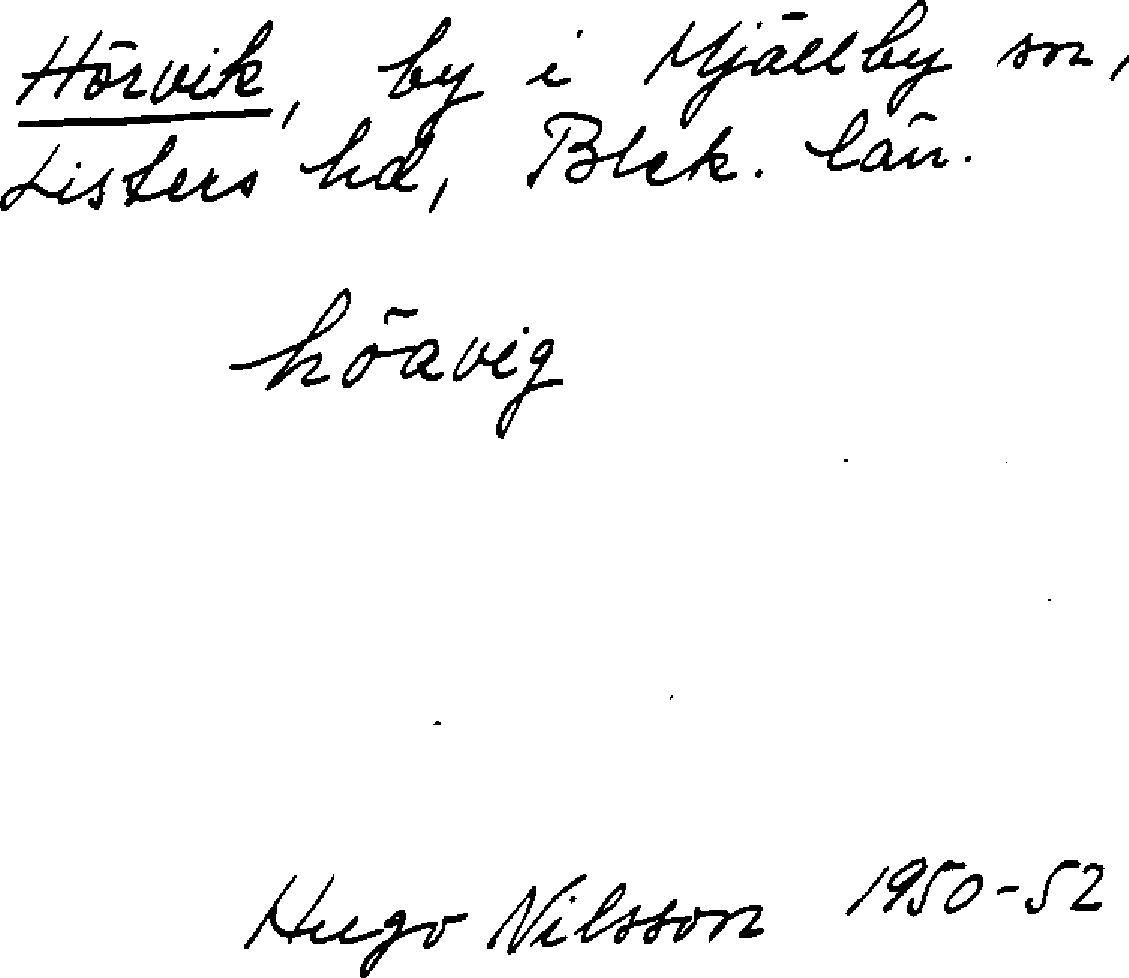 Hörvik, by i Mjällby sn,
Listers hd, Blek. län.
höavig
Hugo Nilsson 1950-52